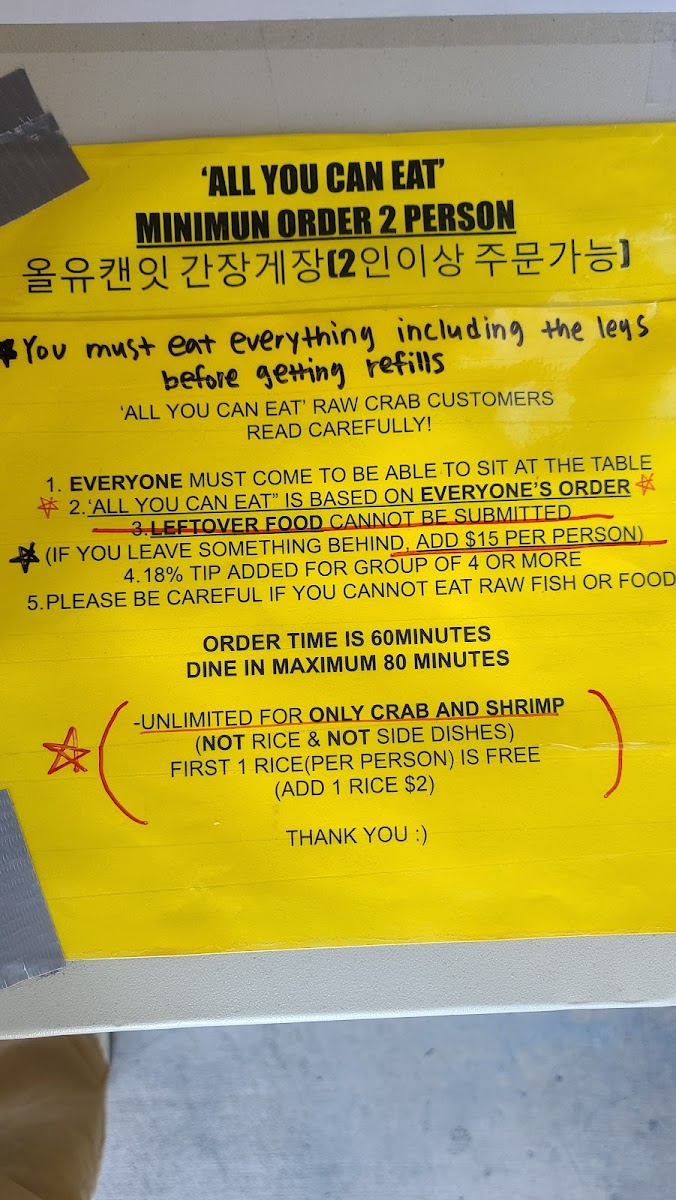 ‘ALL YOU CAN EAT’
MINIMUN ORDER 2 PERSON
올유캔잇 간장게장(2인이상 주문가능)
*You must eat everything including the legs
before getting refills
‘ALL YOU CAN EAT’ RAW CRAB CUSTOMERS
READ CAREFULLY!
1. EVERYONE MUST COME TO BE ABLE TO SIT AT THE TABLE
2.‘ALL YOU CAN EAT” IS BASED ON EVERYONE’S ORDER
3.LEFTOVER FOOD CANNOT BE SUBMITTED
(IF YOU LEAVE SOMETHING BEHIND, ADD $15 PER PERSON)
4.18% TIP ADDED FOR GROUP OF 4 OR MORE
5.PLEASE BE CAREFUL IF YOU CANNOT EAT RAW FISH OR FOOD
ORDER TIME IS 60MINUTES
DINE IN MAXIMUM 80 MINUTES
-UNLIMITED FOR ONLY CRAB AND SHRIMP
(NOT RICE & NOT SIDE DISHES)
FIRST 1 RICE(PER PERSON) IS FREE
(ADD 1 RICE $2)
THANK YOU :)